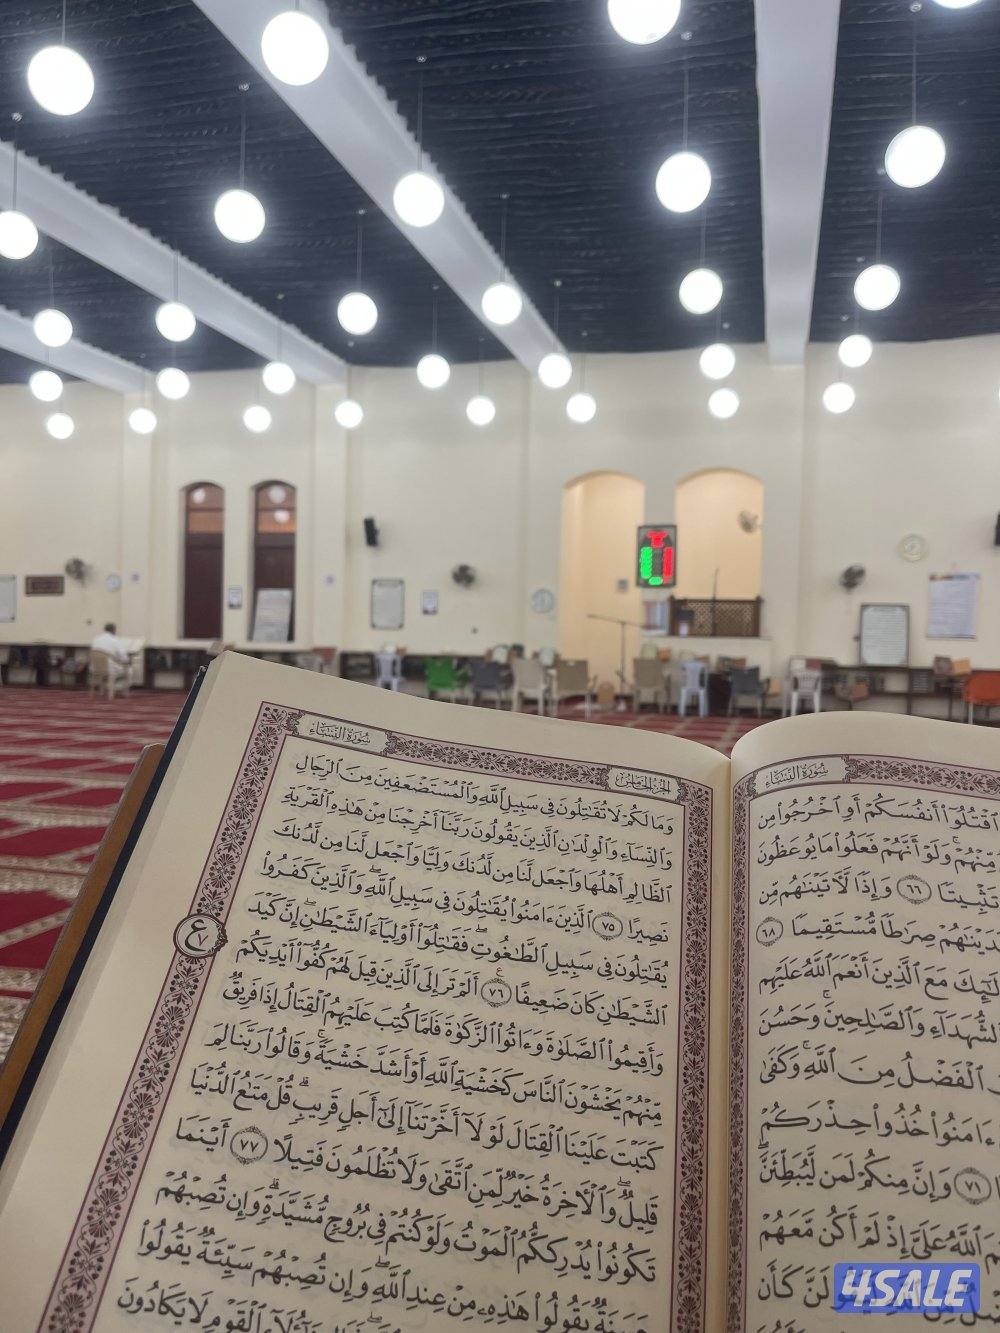 سُورَةُ النِّسَاءِ
ٱقْتُلُوٓاْ أَنفُسَكُمْ أَوِ ٱخْرُجُواْ مِن
مِّنْهُمْۖ وَلَوْ أَنَّهُمْ فَعَلُواْ مَا يُوعَظُونَ
تَثْبِيتًا ٦٦ وَإِذًا لَّأٓتَيْنَٰهُم مِّن
صِرَٰطًا مُّسْتَقِيمًا ٦٨
مَعَ ٱلَّذِينَ أَنْعَمَ ٱللَّهُ عَلَيْهِم
وَٱلصَّٰلِحِينَۚ وَحَسُنَ
ٱلْفَضْلُ مِنَ ٱللَّهِۚ وَكَفَىٰ
ءَامَنُواْ خُذُواْ حِذْرَكُمْ
٧١ وَإِنَّ مِنكُمْ لَمَن لَّيُبَطِّئَنَّۖ
ٱللَّهُ عَلَىَّ إِذْ لَمْ أَكُن مَّعَهُمْ
كَأَن
الجزء الخامس
سُورَةُ النِّسَاءِ
وَمَا لَكُمْ لَا تُقَٰتِلُونَ فِى سَبِيلِ ٱللَّهِ وَٱلْمُسْتَضْعَفِينَ مِنَ ٱلرِّجَالِ
وَٱلنِّسَآءِ وَٱلْوِلْدَٰنِ ٱلَّذِينَ يَقُولُونَ رَبَّنَآ أَخْرِجْنَا مِنْ هَٰذِهِ ٱلْقَرْيَةِ
ٱلظَّالِمِ أَهْلُهَا وَٱجْعَل لَّنَا مِن لَّدُنكَ وَلِيًّا وَٱجْعَل لَّنَا مِن لَّدُنكَ
نَصِيرًا ٧٥ ٱلَّذِينَ ءَامَنُواْ يُقَٰتِلُونَ فِى سَبِيلِ ٱللَّهِۖ وَٱلَّذِينَ كَفَرُواْ
يُقَٰتِلُونَ فِى سَبِيلِ ٱلطَّٰغُوتِ فَقَٰتِلُوٓاْ أَوْلِيَآءَ ٱلشَّيْطَٰنِۖ إِنَّ كَيْدَ
ٱلشَّيْطَٰنِ كَانَ ضَعِيفًا ٧٦ أَلَمْ تَرَ إِلَى ٱلَّذِينَ قِيلَ لَهُمْ كُفُّوٓاْ أَيْدِيَكُمْ
وَأَقِيمُواْ ٱلصَّلَوٰةَ وَءَاتُواْ ٱلزَّكَوٰةَ فَلَمَّا كُتِبَ عَلَيْهِمُ ٱلْقِتَالُ إِذَا فَرِيقٌ
مِّنْهُمْ يَخْشَوْنَ ٱلنَّاسَ كَخَشْيَةِ ٱللَّهِ أَوْ أَشَدَّ خَشْيَةًۚ وَقَالُواْ رَبَّنَا لِمَ
كَتَبْتَ عَلَيْنَا ٱلْقِتَالَ لَوْلَآ أَخَّرْتَنَآ إِلَىٰٓ أَجَلٍ قَرِيبٍۗ قُلْ مَتَٰعُ ٱلدُّنْيَا
قَلِيلٌ وَٱلْأٓخِرَةُ خَيْرٌ لِّمَنِ ٱتَّقَىٰ وَلَا تُظْلَمُونَ فَتِيلًا ٧٧ أَيْنَمَا
تَكُونُواْ يُدْرِككُّمُ ٱلْمَوْتُ وَلَوْ كُنتُمْ فِى بُرُوجٍ مُّشَيَّدَةٍۗ وَإِن تُصِبْهُمْ
حَسَنَةٌ يَقُولُواْ هَٰذِهِۦ مِنْ عِندِ ٱللَّهِۖ وَإِن تُصِبْهُمْ سَيِّئَةٌ يَقُولُواْ
ٱلْقَوْمِ لَا يَكَادُونَ
ع
٧
4SALE